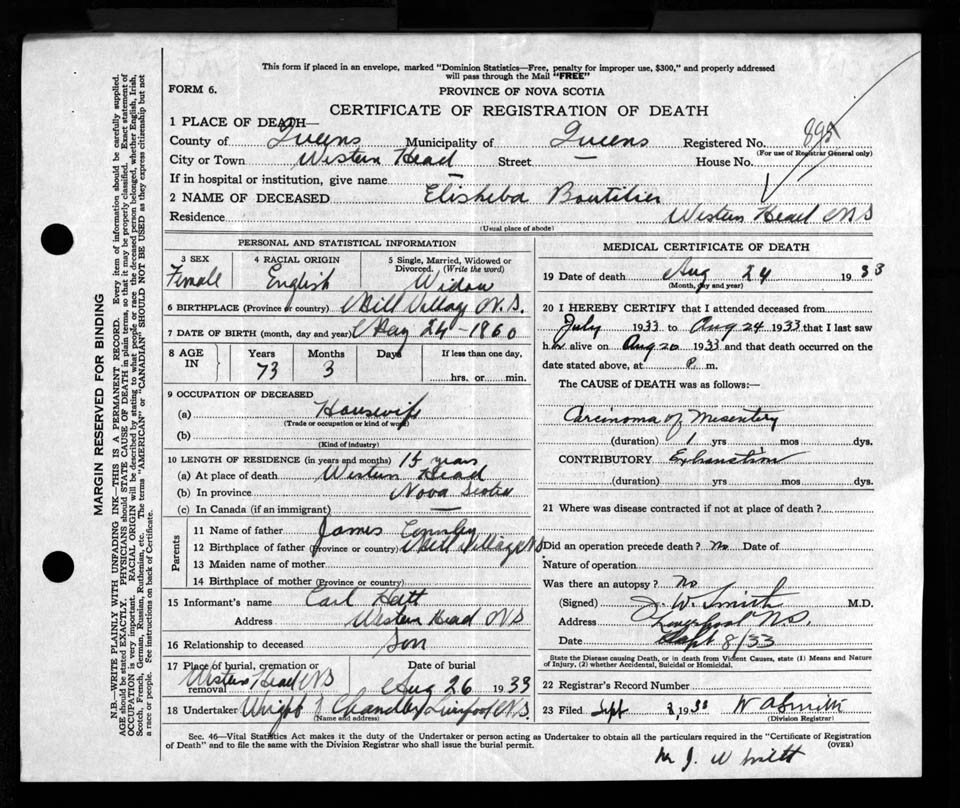 This form if placed in an envelope, marked "Dominion Statistics—Free, penalty for improper use, $300," and properly addressed
will pass through the Mail "FREE"
FORM 6.
PROVINCE OF NOVA SCOTIA
CERTIFICATE OF REGISTRATION OF DEATH
1 PLACE OF DEATH—
County of Queens Municipality of Queens Registered No. 895
(For use of Registrar General only)
City or Town Western Head Street — House No.
If in hospital or institution, give name —
2 NAME OF DECEASED Elisheba Boutilier
Residence Western Head NS
(Usual place of abode)
PERSONAL AND STATISTICAL INFORMATION
3 SEX Female
4 RACIAL ORIGIN English
5 Single, Married, Widowed or Divorced. (Write the word) Widow
6 BIRTHPLACE (Province or country) Mill Village N.S.
7 DATE OF BIRTH (month, day and year) May 24 - 1860
8 AGE IN Years 73 Months 3 Days If less than one day, hrs. or min.
9 OCCUPATION OF DECEASED
(a) Housewife
(Trade or occupation or kind of work)
(b)
(Kind of industry)
10 LENGTH OF RESIDENCE (in years and months) 15 years
(a) At place of death Western Head
(b) In province Nova Scotia
(c) In Canada (if an immigrant) —
Parents
11 Name of father James
12 Birthplace of father (Province or country) Mill Village NS
13 Maiden name of mother
14 Birthplace of mother (Province or country)
15 Informant's name Carl Hatt
Address Western Head NS
16 Relationship to deceased Son
17 Place of burial, cremation or removal Western Head NS Date of burial Aug 26 1933
18 Undertaker Wright Chandler Liverpool N.S.
(Name and address)
MEDICAL CERTIFICATE OF DEATH
19 Date of death Aug 24 1933
(Month, day and year)
20 I HEREBY CERTIFY that I attended deceased from
July 1933 to Aug 24 1933 that I last saw
h alive on Aug 20 1933 and that death occurred on the
date stated above, at P. m.
The CAUSE of DEATH was as follows:—
Carcinoma of Mesentery
(duration) 1 yrs mos dys.
CONTRIBUTORY Exhaustion
(duration) yrs mos dys.
21 Where was disease contracted if not at place of death?
Did an operation precede death? No Date of
Nature of operation
Was there an autopsy? No
(Signed) J. W. Smith M.D.
Address Liverpool NS.
Date Sept 8/33
State the Disease causing Death, or in death from Violent Causes, state (1) Means and Nature of Injury, (2) whether Accidental, Suicidal or Homicidal.
22 Registrar's Record Number
23 Filed Sept 8, 1933 W A Smith
(Division Registrar)
Sec. 46—Vital Statistics Act makes it the duty of the Undertaker or person acting as Undertaker to obtain all the particulars required in the "Certificate of Registration
of Death" and to file the same with the Division Registrar who shall issue the burial permit.
(OVER)
MARGIN RESERVED FOR BINDING
N.B.—WRITE PLAINLY WITH UNFADING INK—THIS IS A PERMANENT RECORD. Every item of information should be carefully supplied.
AGE should be stated EXACTLY. PHYSICIANS should STATE CAUSE OF DEATH in plain terms, so that it may be properly classified. Exact statement of
OCCUPATION is very important. RACIAL ORIGIN will be described by stating to what people or race the deceased person belonged, whether English, Irish,
Scotch, French, German, Russian, Ruthenian, etc. The terms "AMERICAN" or "CANADIAN" SHOULD NOT BE USED as they express citizenship but not
a race or people. See instructions on back of Certificate.